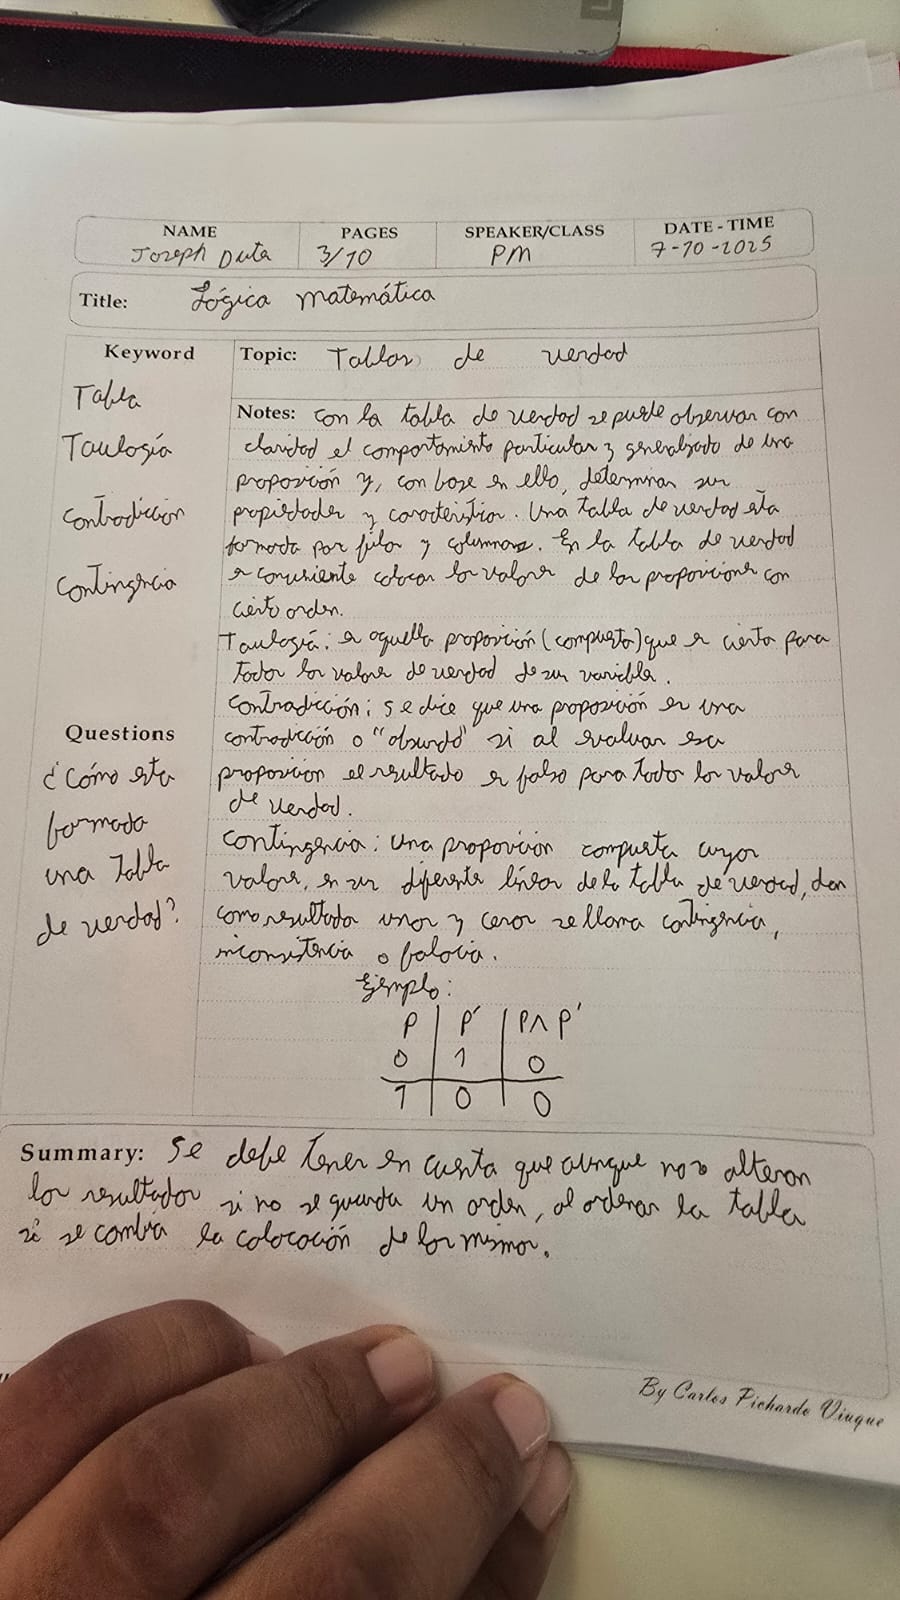 NAME PAGES SPEAKER/CLASS DATE - TIME
Joseph Duta 3/10 PM 7-10-2025
Title: Lógica matemática
Keyword
Tabla
Taulogía
Contradiccion
Contingencia
Questions
¿Cómo esta
formada
una Tabla
de verdad?
Topic: Tablas de verdad
Notes: Con la tabla de verdad se puede observar con
claridad el comportamiento particular y generalizado de una
proposición y, con base en ello, determinar sus
propiedades y características. Una tabla de verdad esta
formada por filas y columnas. En la tabla de verdad
es conveniente colocar los valores de las proposiciones con
cierto orden.
Taulogía: es aquella proposición (compuesta) que es cierta para
todos los valores de verdad de sus variables.
Contradicción: Se dice que una proposición es una
contradicción o "absurdo" si al evaluar esa
proposicion el resultado es falso para todos los valores
de verdad.
Contingencia: Una proposicion compuesta cuyos
valores, en sus diferentes líneas de la tabla de verdad, dan
como resultado unos y ceros se llama contingencia,
inconsistencia o falacia.
Ejemplo:
P P' P∧P'
0 1 0
1 0 0
Summary: Se debe tener en cuenta que aunque no alteran
los resultados si no se guarda un orden, al ordenar la tabla
si se cambia la colocación de los mismos.
By Carlos Pichardo Viuque